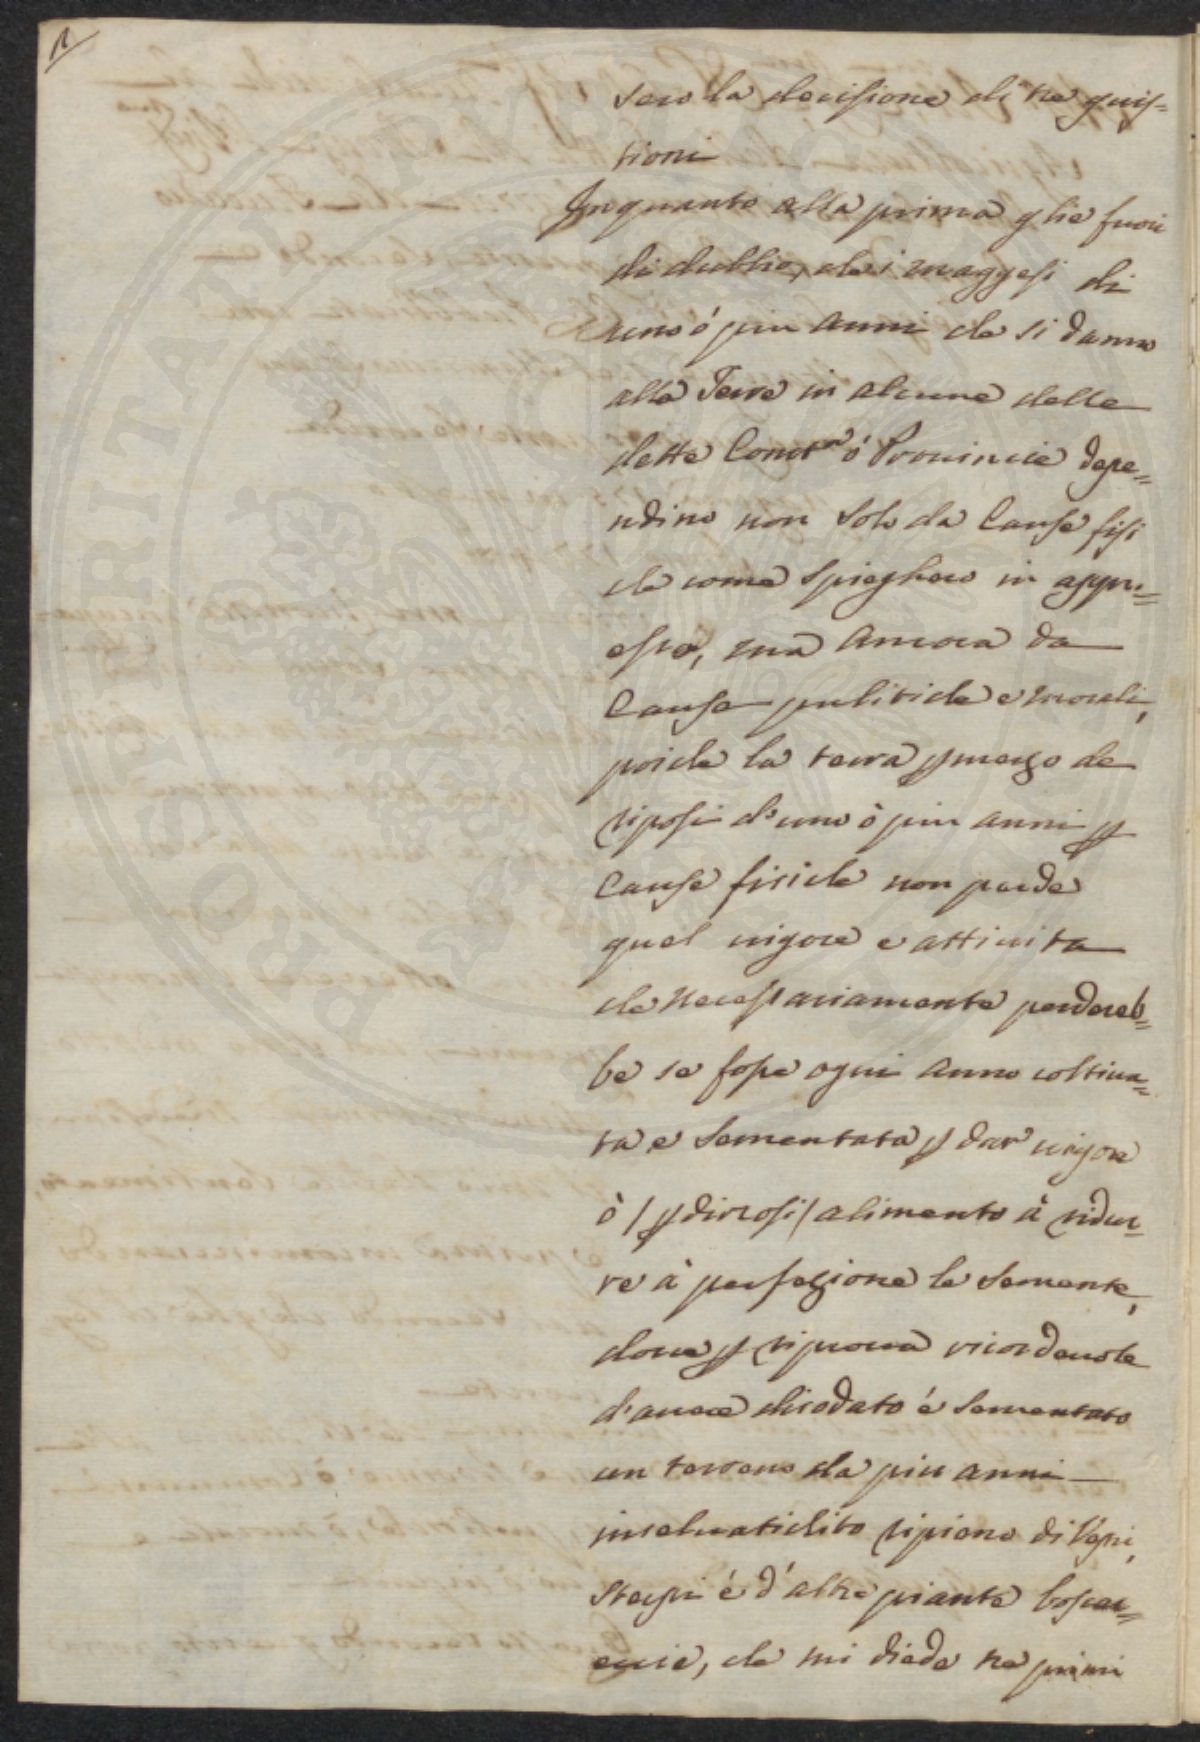 sero la decisione di tre quis=
tioni
Inquanto alla prima glie fuori
di dubbio, che i maggesi di
uno ó piu anni che si danno
alla Terre in alcune delle
dette Comt.à ó Provincie depe=
ndino non solo da Cause fisi
che come spieghero in appr=
esso, ma Ancora da
Cause pulitiche e morali,
poiche la terra p mezo de
riposi d'uno ò piu anni p
Cause fisiche non perde
quel vigore e attivita
che necessariamente perdereb=
be se fosse ogni Anno coltiva=
ta e sementata p dar vigore
ò /p dir cosi/ alimento à ridur=
re à perfezione le semente,
dove p riprova ricordevole
d'avere dicodato é sementato
un terreno da piu anni
inselvatichito ripieno di Vepri,
sterpi é d'altre piante boscar=
eccie, che mi diede tre primi
PROSPERITATI PVBLICAE